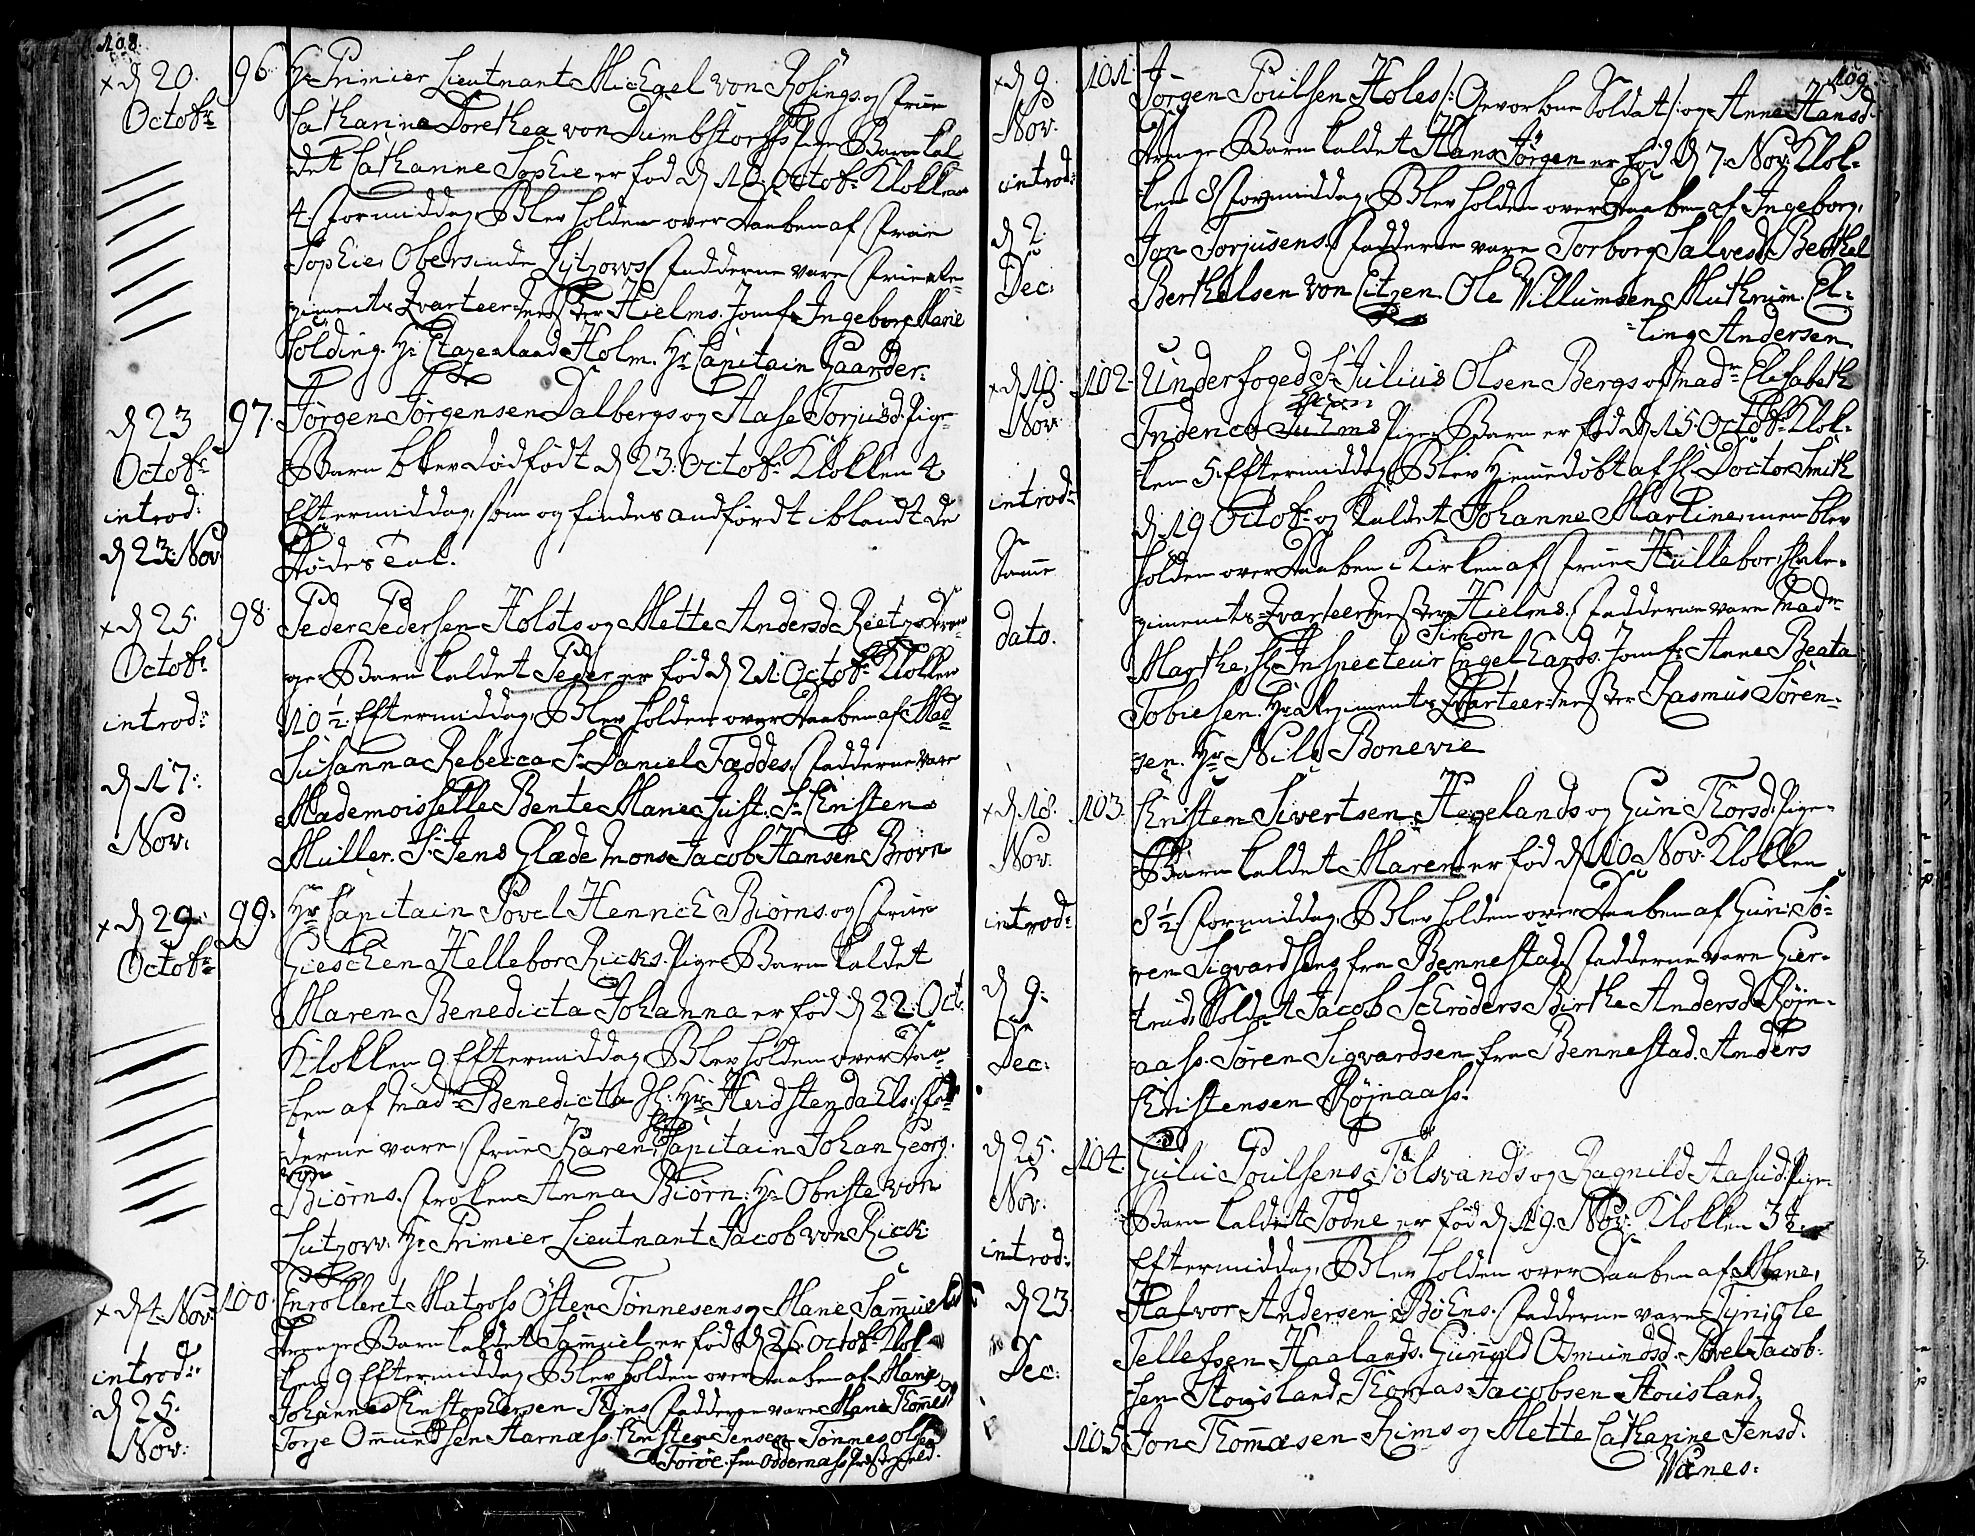 108.
x d 20. Octobr
96. Hr Primier Lieutnant Michael von Rosings og Frue
Catharina Dorethea von Dumbstorffs Pige Barn kal-
det Cathanne Sophie er fød d 10 Octobr Klokken
4. Formiddag, Blev holden over Daaben af Frue
Sophie Obersinde Lÿtzows, Fadderne vare Frue Re-
giments Qvarteer Mester Hielms. Jomfr Ingeborg Marie
Colding. Hr Etazeraad Holm. Hr Capitain Gaarder.
d 23 Octobr introd: d 23. Nov
97. Jørgen Jørgensen Dalbergs og Aase Torjusd. Pige-
Barn blev dødfødt d 23. Octobr Klokken 4
Eftermiddag, som og findes andførdt iblandt de
Dødes Tal.
x d 25. Octobr introd: d 17. Nov.
98 Peder Pedersen Holsts og Mette Andersd. Dren-
ge Barn kaldet Peder er fød d 21. Octobr Klokken
10 1/2 Eftermiddag, Blev holden over Daaben af Mad
Susanna Rebecca Sr Daniel Fæddes, Fadderne vare
Mademoisselle Bente Marie Just. Sr Christen
Müller. Sr Jens Glæde Mons. Jacob Hansen Brovn
x d 29. Octobr
99. Hr Capitain Povel Hennch Biørns og Frue
Gieschen Hellebor Ricks Pige Barn kaldet
Maren Benedicta Johanna er fød d 22. Oct.
Klokken 9 Eftermiddag, Blev holden over Daa-
ben af Madm Benedicta Sl. Hr Heidstendahls, Fad-
derne vare, Frue Karen Capitain Johan Georg.
Biørns. Frøken Anna Biørn. Hr Obriste von
Lutzow. Hr Primier Lieutnant Jacob von Rick
x d 4. Nov. introd: d 25. Nov.
100. Enrolleret Matross Østen Tønnesens og Mane Sammuelsd
Drenge Barn kaldet Sammuel, er fød d 26 Octobr Klok-
ken 9 Eftermiddag, Blev holden over Daaben af Mane,
Johannes Christophersen Fadderne vare Mane Thommesd
Torje Ommundsen Harnæss. Christen Jensen Tønnes Olsen
Torøe fra Oddernæss Præstegield.
109.
x d 9. Nov. introd: d 2. Dec:
101. Jørgen Poulsen Holes /: Gevorbne Soldat :/ og Anne Hansd
Drenge Barn kaldet Hans Jørgen er fød d 7. Nov. Klok-
ken 8 Formiddag, Blev holden over Daaben af Ingeborg,
Jon Torjusens. Fadderne vare Torborg Salvesd. Berthel
Berthelsen von Eitzen. Ole Willumsen. El-
ling Andersen.
x d 19. Nov. introd: Samme dato.
102. Underfoged Sr Julius Olsen Bergs og Madm Elisabeth
Fridenca Pige Barn er fød d 15. Octobr Klok-
ken 5. Eftermiddag, Blev Hiemmedøbt af Sl Doctor Smith
d 19 Octobr og kaldet Johanne Martine, men blev
holden over Daaben i Kirken af Frue Hullebor, Re-
giments Qvarteer Mester Hielms. Fadderne vare Madm
Marthe, Sl Inspecteur Simon Engelhards. Jomfr Anne Beata
Tobiesen. Hr Regiments Qvarteer Mester Rasmus Søren-
sen. Hr Nils Bonevie
x d 18. Nov. introd: d 9. Dec:
103. Christen Sivertsen Hegelands og Gun Thorsd. Pige-
Barn kaldet Maren er fød d 10 Nov. Klokken
8 1/2 Formiddag, Blev holden over Daaben af Gun Sø-
ren Sigvardsens fra Bennestad. Fadderne vare Gier-
trud, Soldat Jacob Schrøders. Birthe Andersd. Røjn-
aass. Søren Sigvardsen fra Bennestad. Anders
Christensen Røjnaass.
d 25. Nov. introd: d 23. Dec:
104. Guliu Poulsens Tolsvands og Ragnild Aasuld. Pige
Barn kaldet Todne er fød d 19. Nov. Klokken 3 1/2
Eftermiddag, Blev holden over Daaben af Mane,
Halvor Andersen Bøens. Fadderne vare Synigle
Tellefsen Haalands. Gunuld Osmundsd. Povel Jacob-
sen Stousland, Thomas Jacobsen Stousland,
105 Jon Thommæsen Rims og Mette Cathanne Jensd.
Wænes.